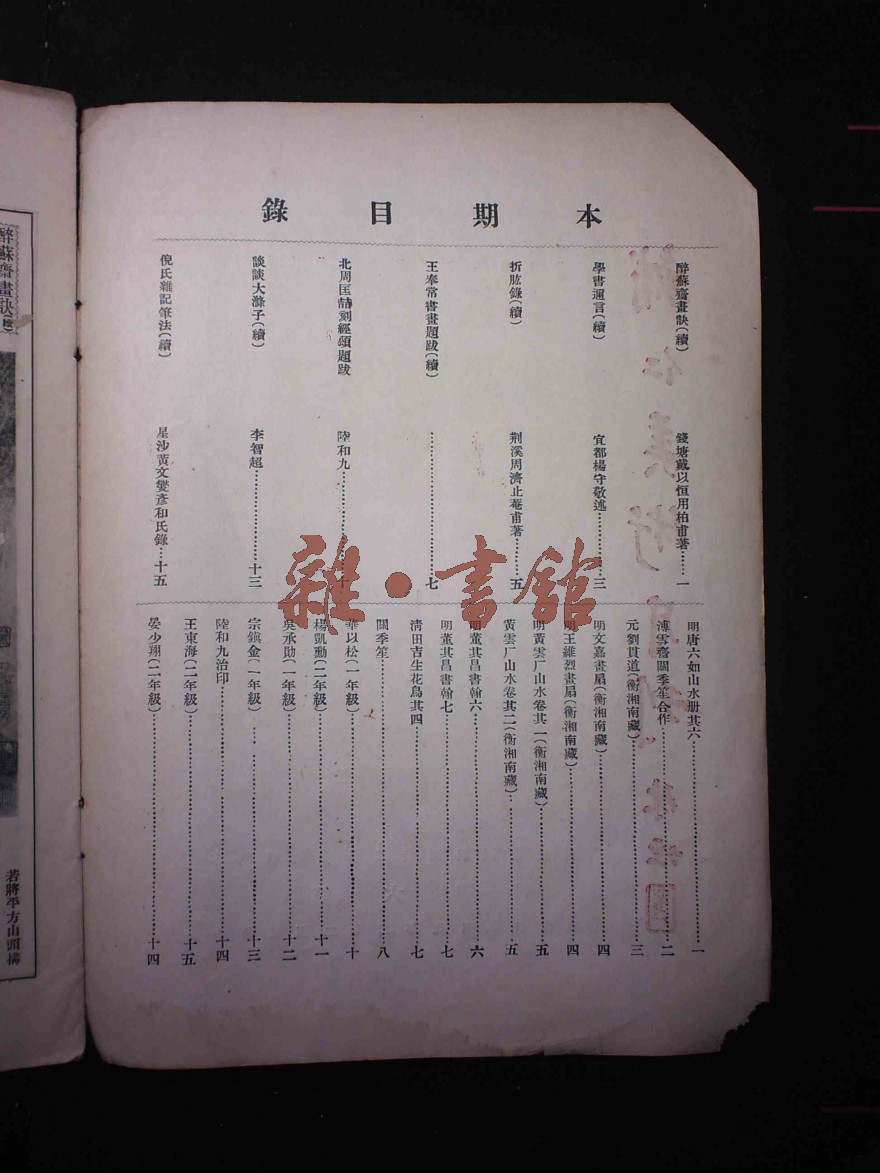 本期目錄
醉蘇齋畫訣(續) 錢塘戴以恒用柏甫著…一
學書邇言(續) 宜都楊守敬述…三
折肱錄(續) 荆溪周濟止菴甫著…五
王奉常書畫題跋(續)…七
北周匡喆刻經頌題跋 陸和九…十
談談大滌子(續) 李智超…十三
倪氏雜記筆法(續) 星沙黃文燮彥和氏錄…十五
明唐六如山水册其六…一
溥雪齋關季笙合作…二
元劉貫道(衡湘南藏)…三
明文嘉畫扇(衡湘南藏)…四
明王維烈畫扇(衡湘南藏)…四
明黃雲厂山水卷其一(衡湘南藏)…五
黃雲厂山水卷其二(衡湘南藏)…五
明董其昌書翰六…六
明董其昌書翰七…七
清田吉生花鳥其四…七
關季笙…八
華以松(一年級)…十
楊凱勳(二年級)…十一
吳承勛(一年級)…十二
宗鎮金(一年級)…十三
陸和九治印…十四
王東海(二年級)…十五
晏少翔(二年級)…十四
醉蘇齋畫訣(續)
若將平方山頭拂
雜·書館